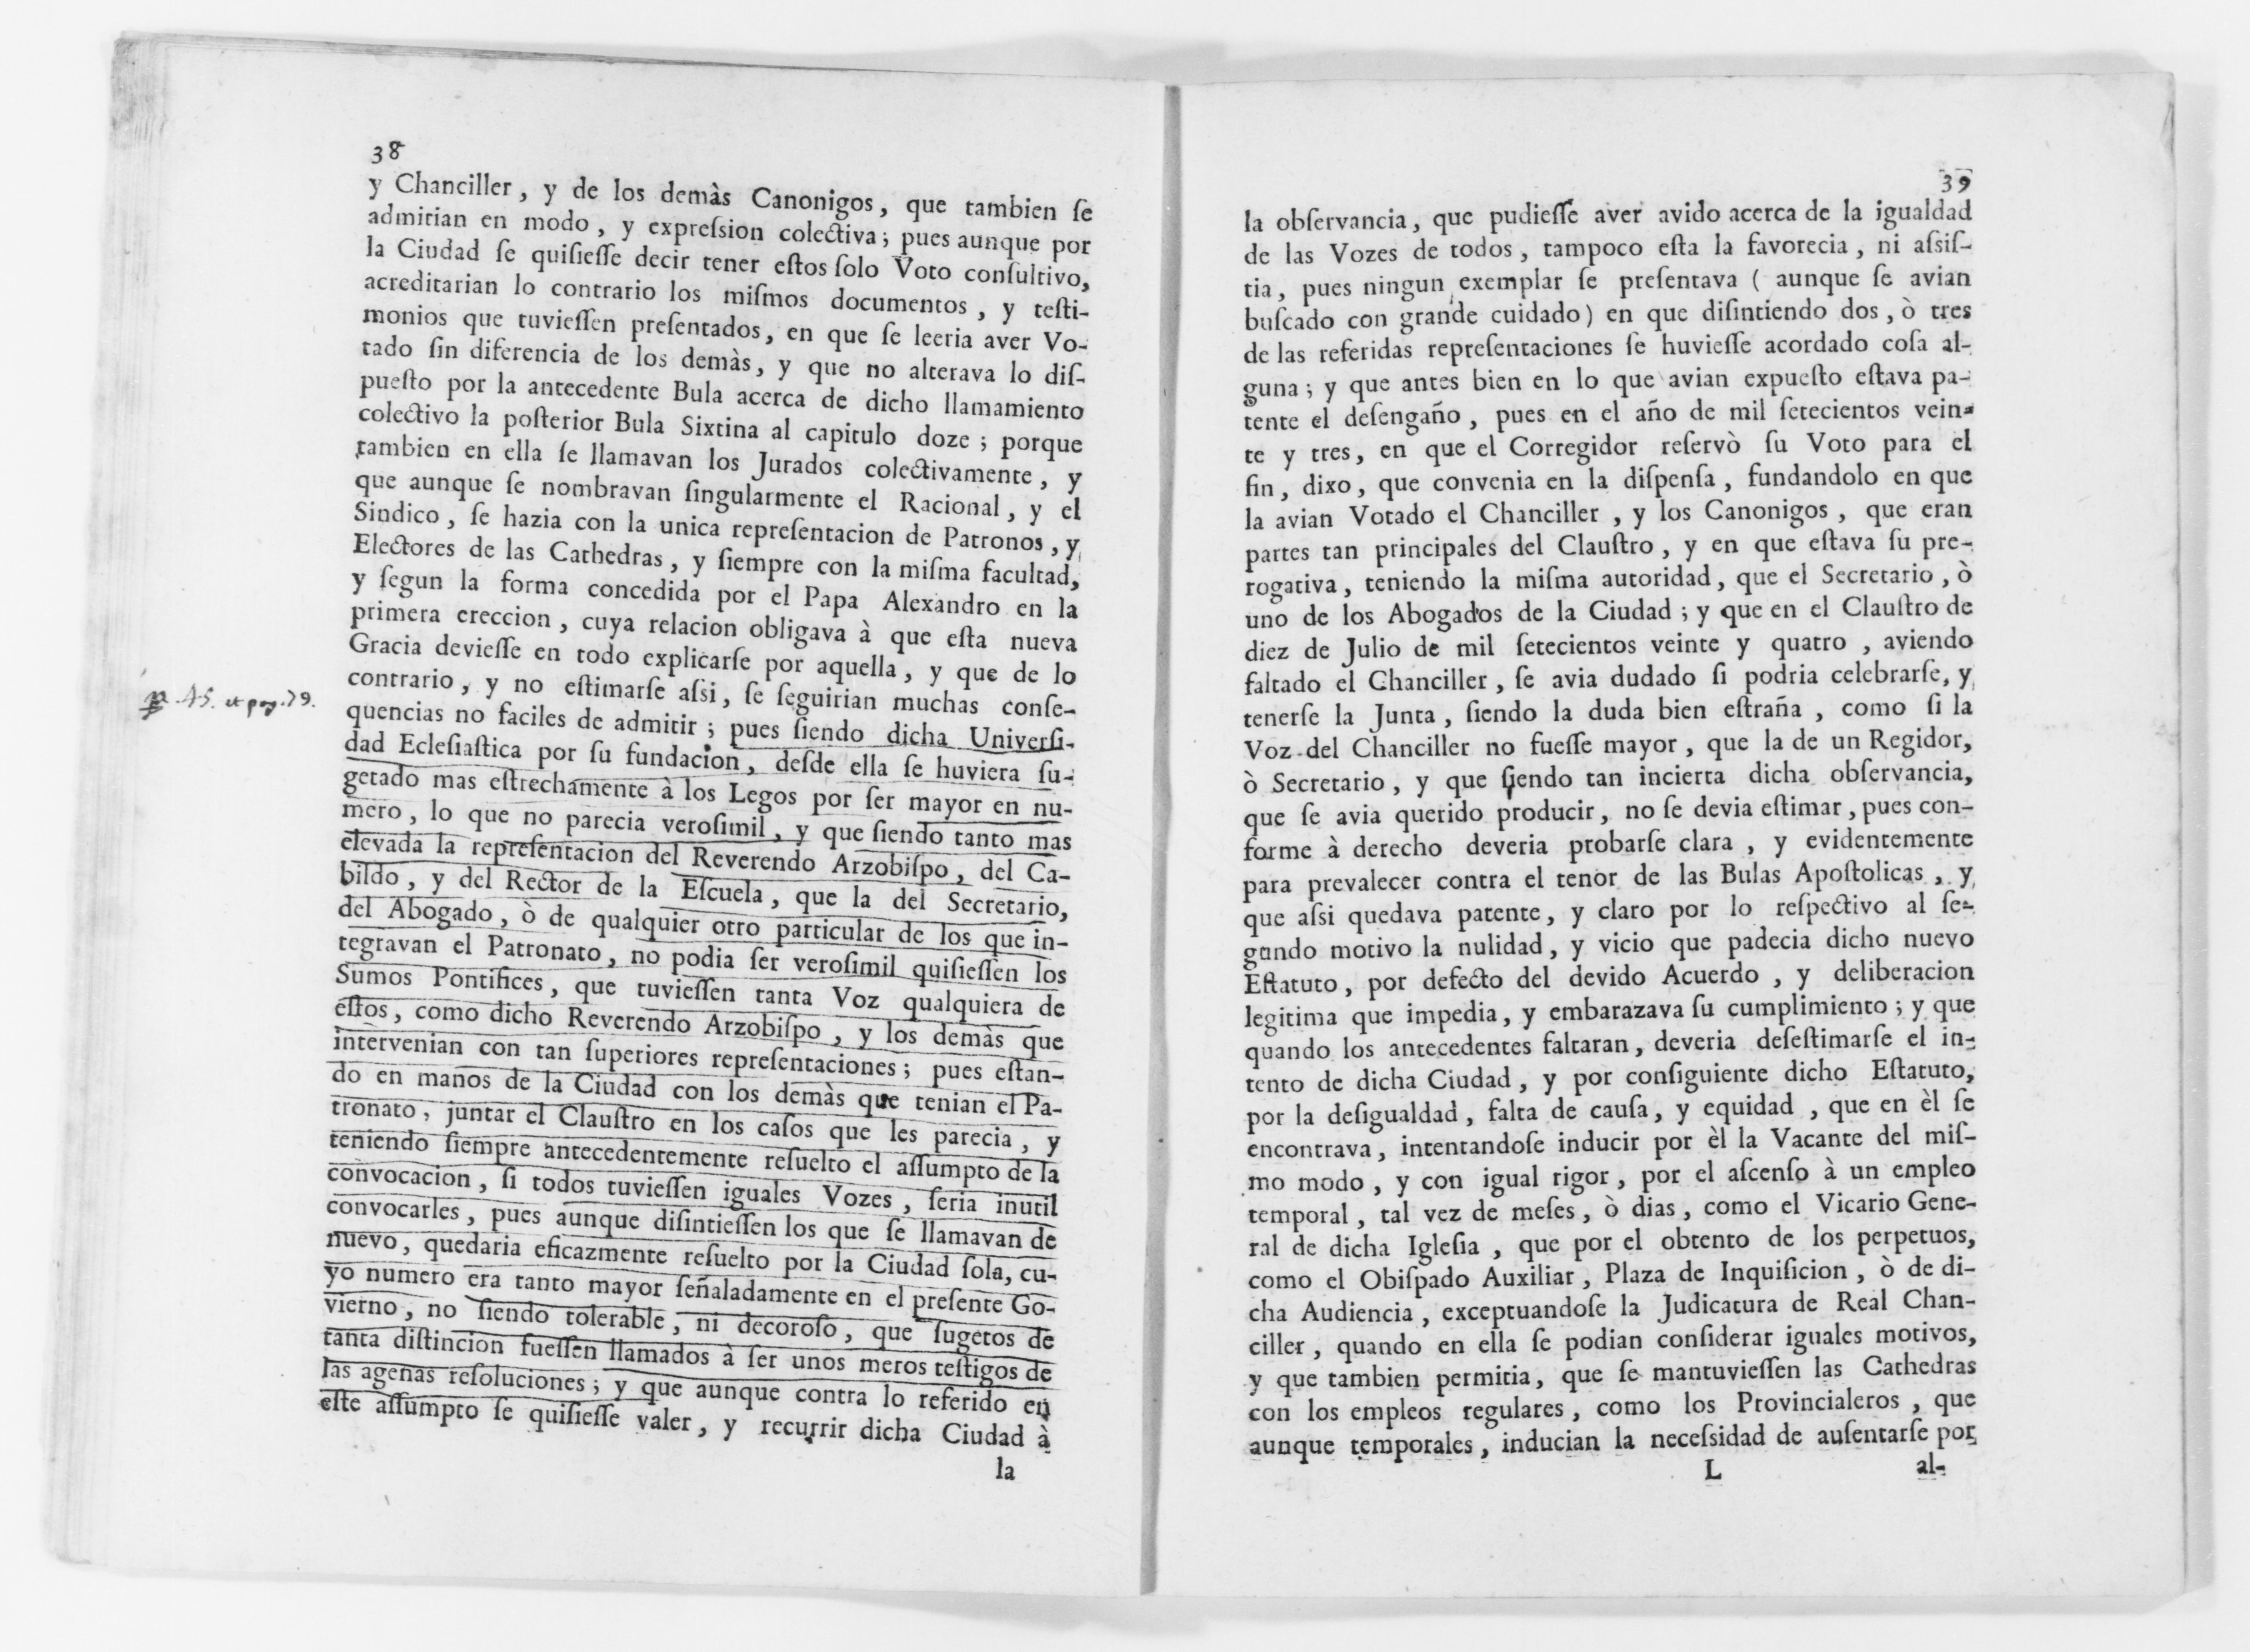 38
y Chanciller, y de los demàs Canonigos, que tambien ſe
admitian en modo, y expreſsion colectiva; pues aunque por
la Ciudad ſe quiſieſſe decir tener eſtos ſolo Voto conſultivo,
acreditarian lo contrario los miſmos documentos, y teſti-
monios que tuvieſſen preſentados, en que ſe leeria aver Vo-
tado ſin diferencia de los demàs, y que no alterava lo diſ-
pueſto por la antecedente Bula acerca de dicho llamamiento
colectivo la poſterior Bula Sixtina al capitulo doze; porque
tambien en ella ſe llamavan los Jurados colectivamente, y
que aunque ſe nombravan ſingularmente el Racional, y el
Sindico, ſe hazia con la unica repreſentacion de Patronos, y
Electores de las Cathedras, y ſiempre con la miſma facultad,
y ſegun la forma concedida por el Papa Alexandro en la
primera ereccion, cuya relacion obligava à que eſta nueva
Gracia devieſſe en todo explicarſe por aquella, y que de lo
contrario, y no eſtimarſe aſsi, ſe ſeguirian muchas conſe-
quencias no faciles de admitir; pues ſiendo dicha Univerſi-
dad Ecleſiaſtica por ſu fundacion, deſde ella ſe huviera ſu-
getado mas eſtrechamente à los Legos por ſer mayor en nu-
mero, lo que no parecia veroſimil, y que ſiendo tanto mas
elevada la repreſentacion del Reverendo Arzobiſpo, del Ca-
bildo, y del Rector de la Eſcuela, que la del Secretario,
del Abogado, ò de qualquier otro particular de los que in-
tegravan el Patronato, no podia ſer veroſimil quiſieſſen los
Sumos Pontifices, que tuvieſſen tanta Voz qualquiera de
eſtos, como dicho Reverendo Arzobiſpo, y los demàs que
intervenian con tan ſuperiores repreſentaciones; pues eſtan-
do en manos de la Ciudad con los demàs que tenian el Pa-
tronato, juntar el Clauſtro en los caſos que les parecia, y
teniendo ſiempre antecedentemente reſuelto el aſſumpto de la
convocacion, ſi todos tuvieſſen iguales Vozes, ſeria inutil
convocarles, pues aunque diſintieſſen los que ſe llamavan de
nuevo, quedaria eficazmente reſuelto por la Ciudad ſola, cu-
yo numero era tanto mayor ſeñaladamente en el preſente Go-
vierno, no ſiendo tolerable, ni decoroſo, que ſugetos de
tanta diſtincion fueſſen llamados à ſer unos meros teſtigos de
las agenas reſoluciones; y que aunque contra lo referido en
eſte aſſumpto ſe quiſieſſe valer, y recurrir dicha Ciudad à
la
45. et pag. 79.
39
la obſervancia, que pudieſſe aver avido acerca de la igualdad
de las Vozes de todos, tampoco eſta la favorecia, ni aſsiſ-
tia, pues ningun exemplar ſe preſentava (aunque ſe avian
buſcado con grande cuidado) en que diſintiendo dos, ò tres
de las referidas repreſentaciones ſe huvieſſe acordado coſa al-
guna; y que antes bien en lo que avian expueſto eſtava pa-
tente el deſengaño, pues en el año de mil ſetecientos vein-
te y tres, en que el Corregidor reſervò ſu Voto para el
fin, dixo, que convenia en la diſpenſa, fundandolo en que
la avian Votado el Chanciller, y los Canonigos, que eran
partes tan principales del Clauſtro, y en que eſtava ſu pre-
rogativa, teniendo la miſma autoridad, que el Secretario, ò
uno de los Abogados de la Ciudad; y que en el Clauſtro de
diez de Julio de mil ſetecientos veinte y quatro, aviendo
faltado el Chanciller, ſe avia dudado ſi podria celebrarſe, y
tenerſe la Junta, ſiendo la duda bien eſtraña, como ſi la
Voz del Chanciller no fueſſe mayor, que la de un Regidor,
ò Secretario, y que ſiendo tan incierta dicha obſervancia,
que ſe avia querido producir, no ſe devia eſtimar, pues con-
forme à derecho deveria probarſe clara, y evidentemente
para prevalecer contra el tenor de las Bulas Apoſtolicas, y
que aſsi quedava patente, y claro por lo reſpectivo al ſe-
gundo motivo la nulidad, y vicio que padecia dicho nuevo
Eſtatuto, por defecto del devido Acuerdo, y deliberacion
legitima que impedia, y embarazava ſu cumplimiento; y que
quando los antecedentes faltaran, deveria deſeſtimarſe el in-
tento de dicha Ciudad, y por conſiguiente dicho Eſtatuto,
por la deſigualdad, falta de cauſa, y equidad, que en èl ſe
encontrava, intentandoſe inducir por èl la Vacante del miſ-
mo modo, y con igual rigor, por el aſcenſo à un empleo
temporal, tal vez de meſes, ò dias, como el Vicario Gene-
ral de dicha Igleſia, que por el obtento de los perpetuos,
como el Obiſpado Auxiliar, Plaza de Inquiſicion, ò de di-
cha Audiencia, exceptuandoſe la Judicatura de Real Chan-
ciller, quando en ella ſe podian conſiderar iguales motivos,
y que tambien permitia, que ſe mantuvieſſen las Cathedras
con los empleos regulares, como los Provincialeros, que
aunque temporales, inducian la neceſsidad de auſentarſe por
L al-